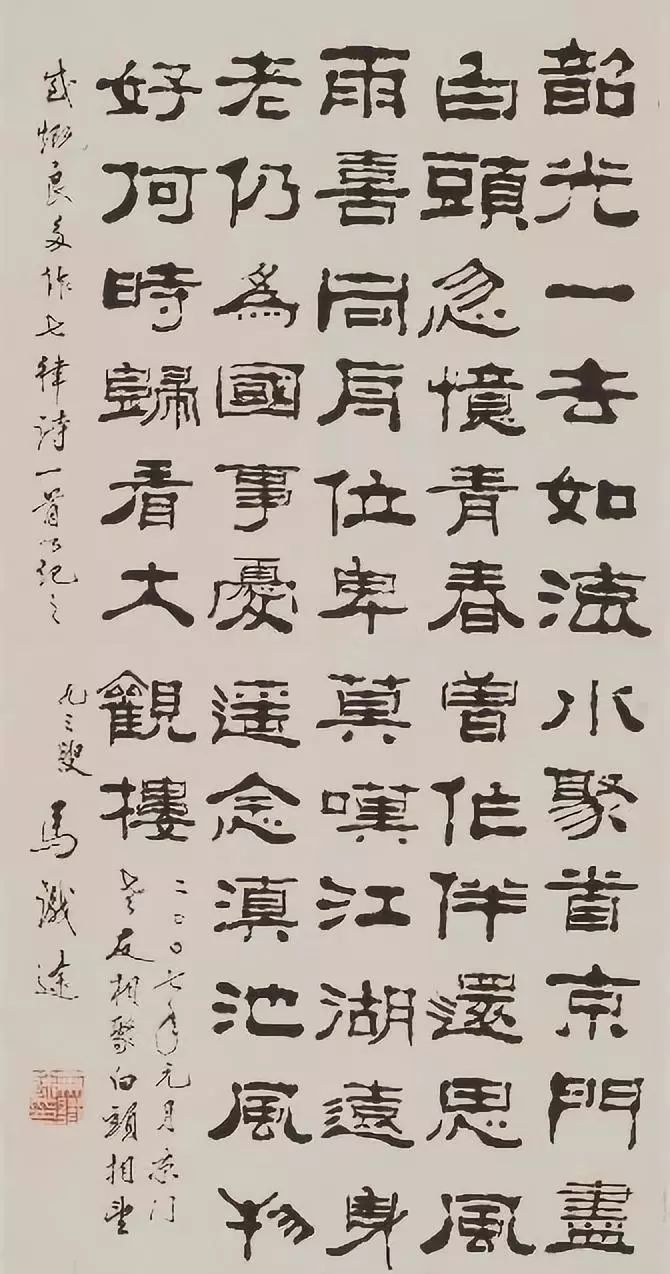 韶光一去如水聚首京門盡
白頭忽憶青春曾作伴還思風
雨喜同舟位卑莫嘆江湖遠身
老仍爲國事憂遥念滇池風物
好何時歸看大觀樓
二〇〇七年元月京门
老友相聚白頭相望
感慨良多作七律诗一首以纪之
九三叟 馬識途